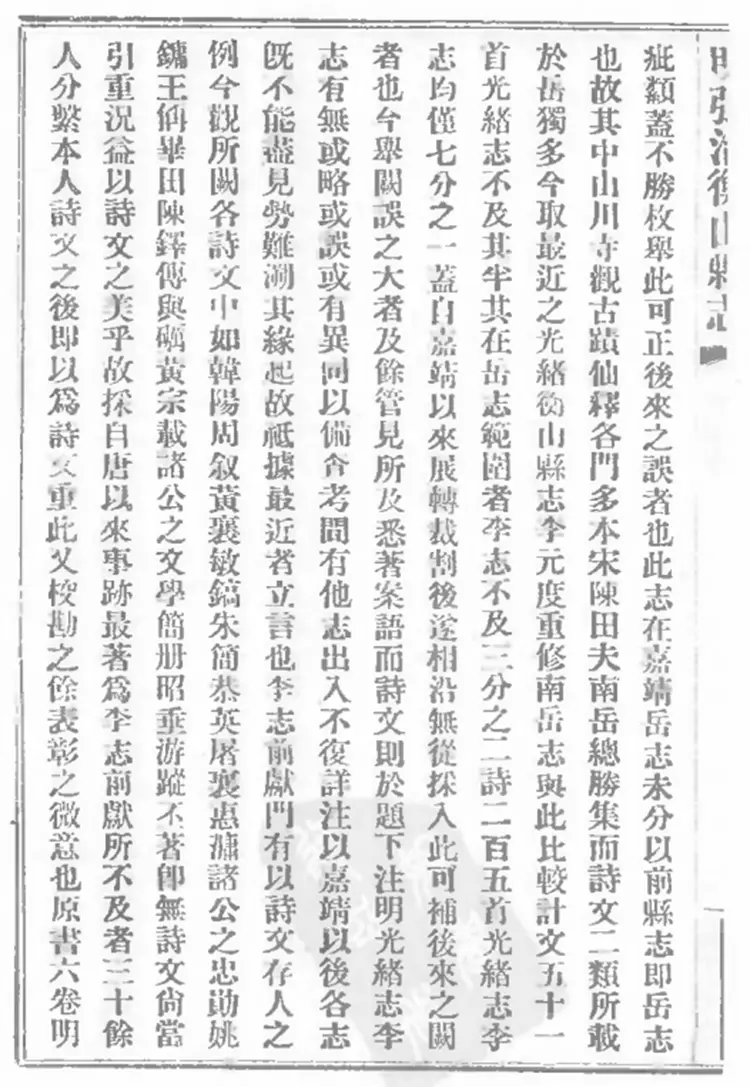 明張治衡山縣志
疵纇蓋不勝枚舉此可正後來之誤者也此志在嘉靖岳志未分以前縣志即岳志
也故其中山川寺觀古蹟仙釋各門多本宋陳田夫南岳總勝集而詩文二類所載
於岳獨多今取最近之光緒衡山縣志李元度重修南岳志與此比較計文五十一
首光緒志不及其半其在岳志範圍者李志不及三分之二詩二百五首光緒志李
志均僅七分之一蓋自嘉靖以來展轉裁割後遂相沿無從採入此可補後來之闕
者也今舉闕誤之大者及餘管見所及悉著案語而詩文則於題下注明光緒志李
志有無或略或誤或有異同以備查考間有他志出入不復詳注以嘉靖以後各志
旣不能盡見勢難溯其緣起故祗據最近者立言也李志前獻門有以詩文存人之
例今觀所闕各詩文中如韓陽周叙黃襄敏鎬朱簡恭英屠襄惠滽諸公之忠勛姚
鏞王偁畢田陳鐸傅與礪黃宗載諸公之文學簡册昭垂游蹤不著卽無詩文尙當
引重況益以詩文之美乎故採自唐以來事跡最著爲李志前獻所不及者三十餘
人分繫本人詩文之後即以爲詩文重此又校勘之餘表彰之微意也原書六卷明